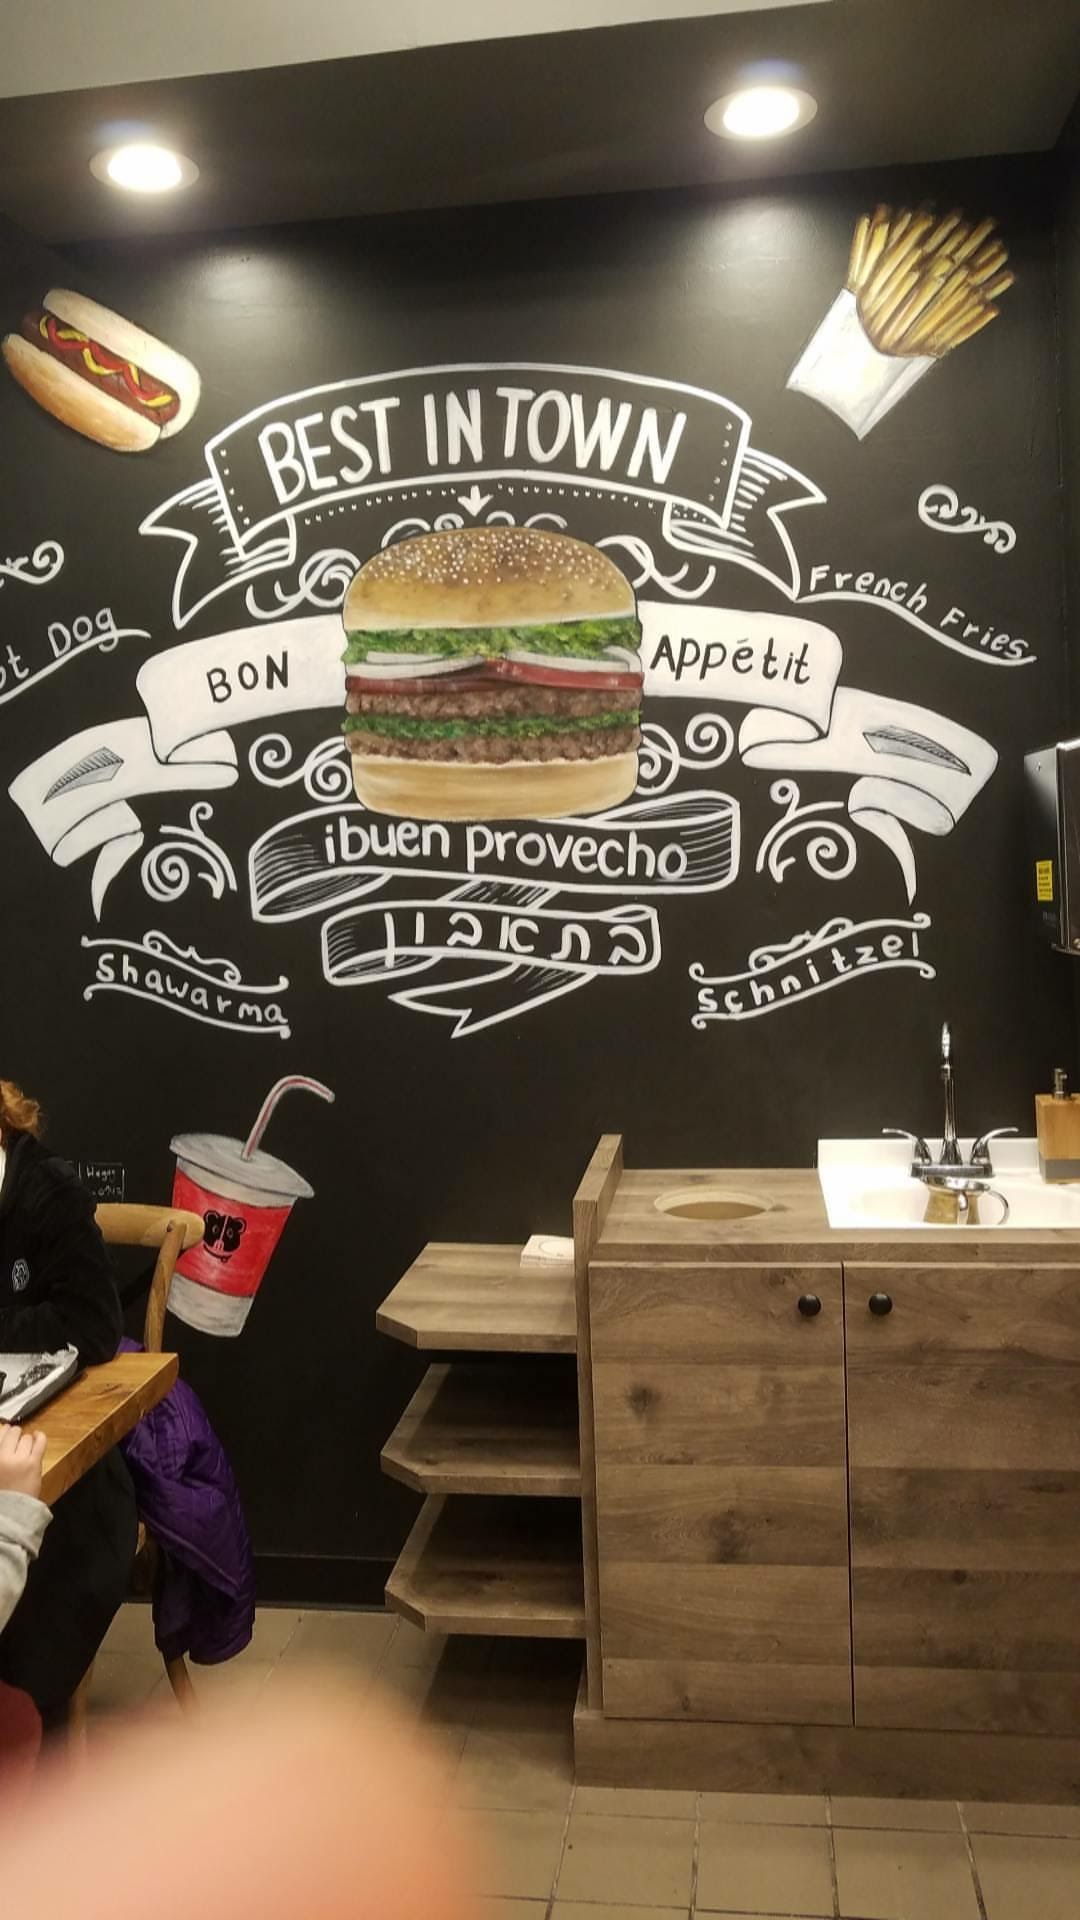 BEST IN TOWN
BON Appétit
French Fries
Dog
¡buen provecho
בתאבון
Shawarma
Schnitzel